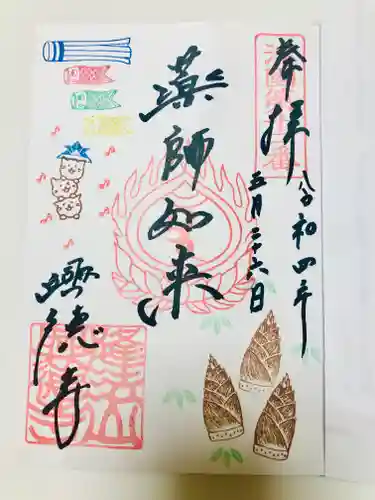 奉拝
令和四年
五月二十六日
薬師如来
顕徳寺